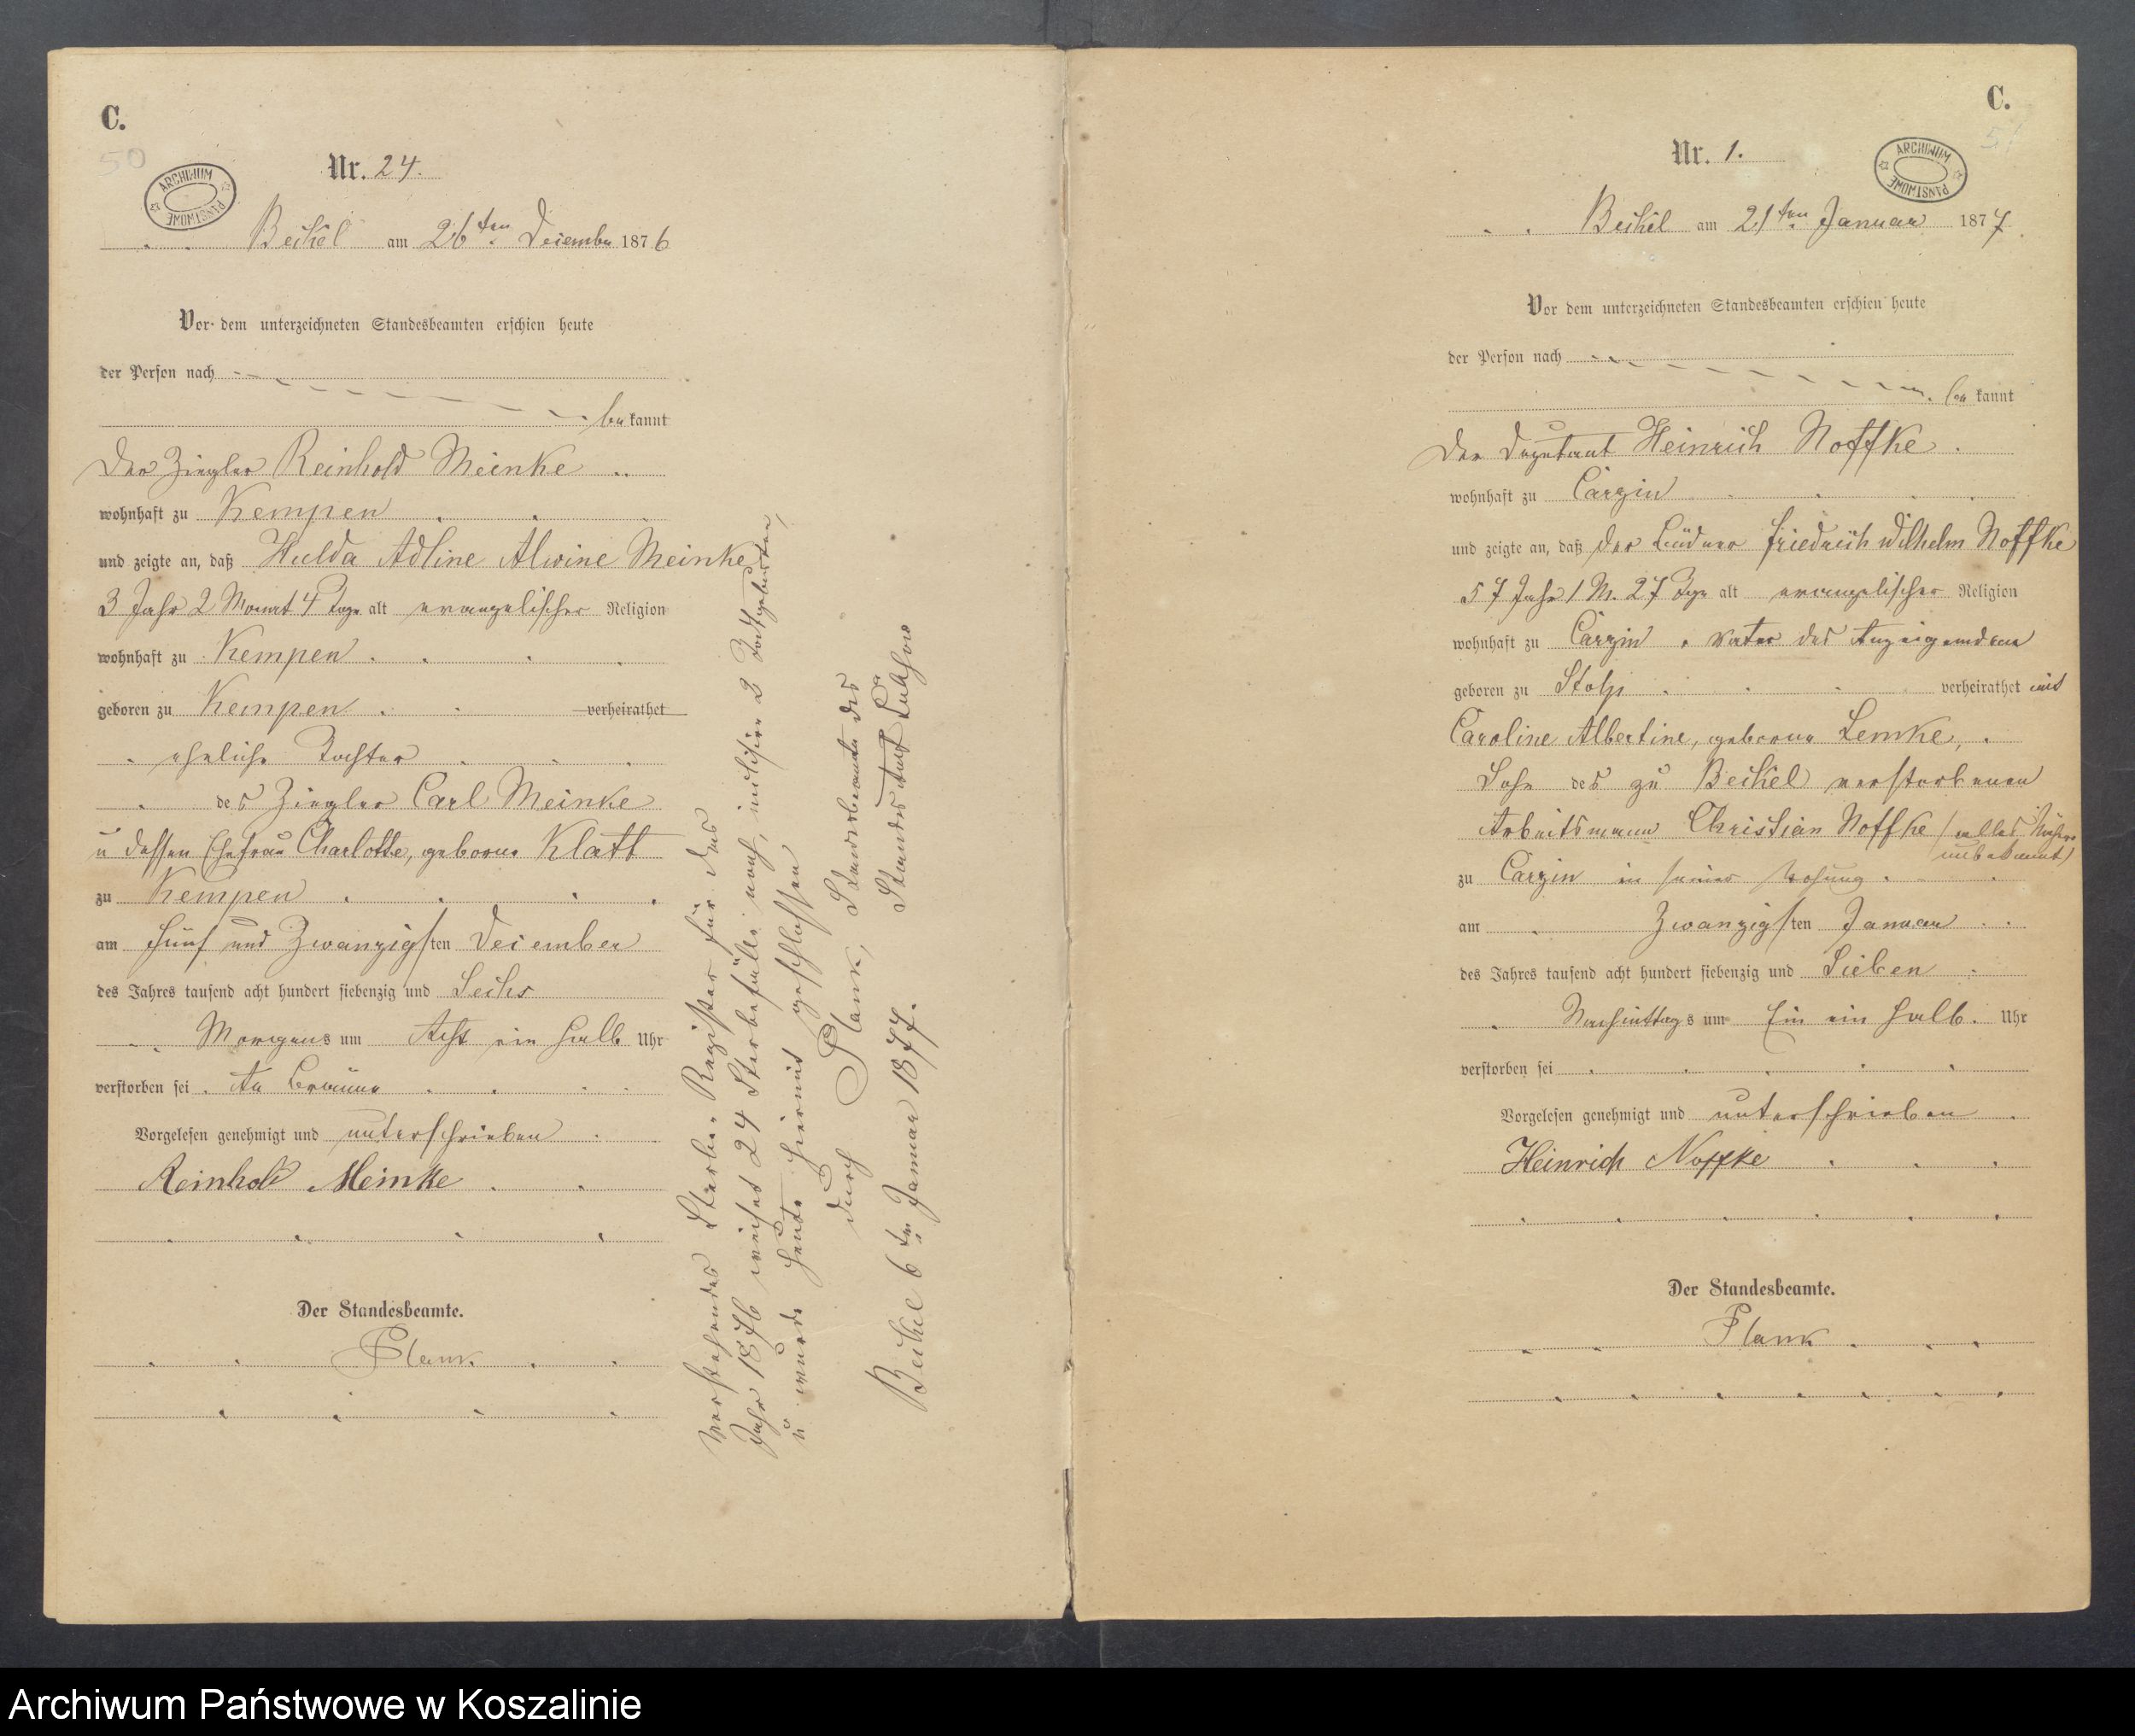 C.
50
Nr. 24.
ARCHIWUM PAŃSTWOWE
Beikel am 26ten Deiember 1876
Vor dem unterzeichneten Standesbeamten erschien heute
der Person nach
bekannt
Der Ziegler Reinhold Meinke
wohnhaft zu Kempen
und zeigte an, daß Hulda Adline Alwine Meinke
3 Jahr 2 Monat 4 Tage alt evangelischer Religion
wohnhaft zu Kempen
geboren zu Kempen verheirathet
eheliche Tochter
des Ziegler Carl Meinke
u dessen Ehefrau Charlotte, geborne Klatt
zu Kempen
am Fünf und Zwanzigsten Deiember
des Jahres tausend acht hundert siebenzig und Sechs
Morgens um Acht ein halb Uhr
verstorben sei. An Bräune
Vorgelesen genehmigt und unterschrieben
Reinhold Meinke
Der Standesbeamte.
Plank
Vorstehendes Sterbe-Register für das
Jahr 1876 weiset 24 Sterbefälle nach, inclusive 2 Todtgeburten,
u wurde heute hiermit geschlossen
durch Plank, Standesbeamte des
Standes Amt Lubhow
Beikel 6ten Januar 1877.
C.
51
Nr. 1.
ARCHIWUM PAŃSTWOWE
Beikel am 21ten Januar 1877
Vor dem unterzeichneten Standesbeamten erschien heute
der Person nach
bekannt
Der Deputant Heinrich Noffke
wohnhaft zu Carzin
und zeigte an, daß der Büdner Friedrich Wilhelm Noffke
57 Jahr 1 M. 27 Tge alt evangelischer Religion
wohnhaft zu Carzin, Vater des Anzeigenden
geboren zu Stolp verheirathet mit
Caroline Albertine, geborne Lemke,
Sohn des zu Beikel verstorbenen
Arbeitsmann Christian Noffke (alles Nähere
unbekannt)
zu Carzin in seiner Wohung
am Zwanzigsten Januar
des Jahres tausend acht hundert siebenzig und Sieben
Nachmittags um Ein ein halb Uhr
verstorben sei
Vorgelesen genehmigt und unterschrieben
Heinrich Noffke
Der Standesbeamte.
Plank
Archiwum Państwowe w Koszalinie